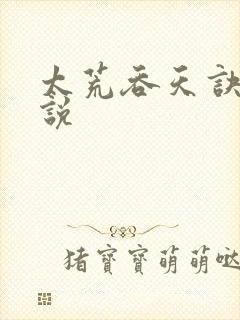 太荒吞天訣
說
猪寶寶萌萌噠